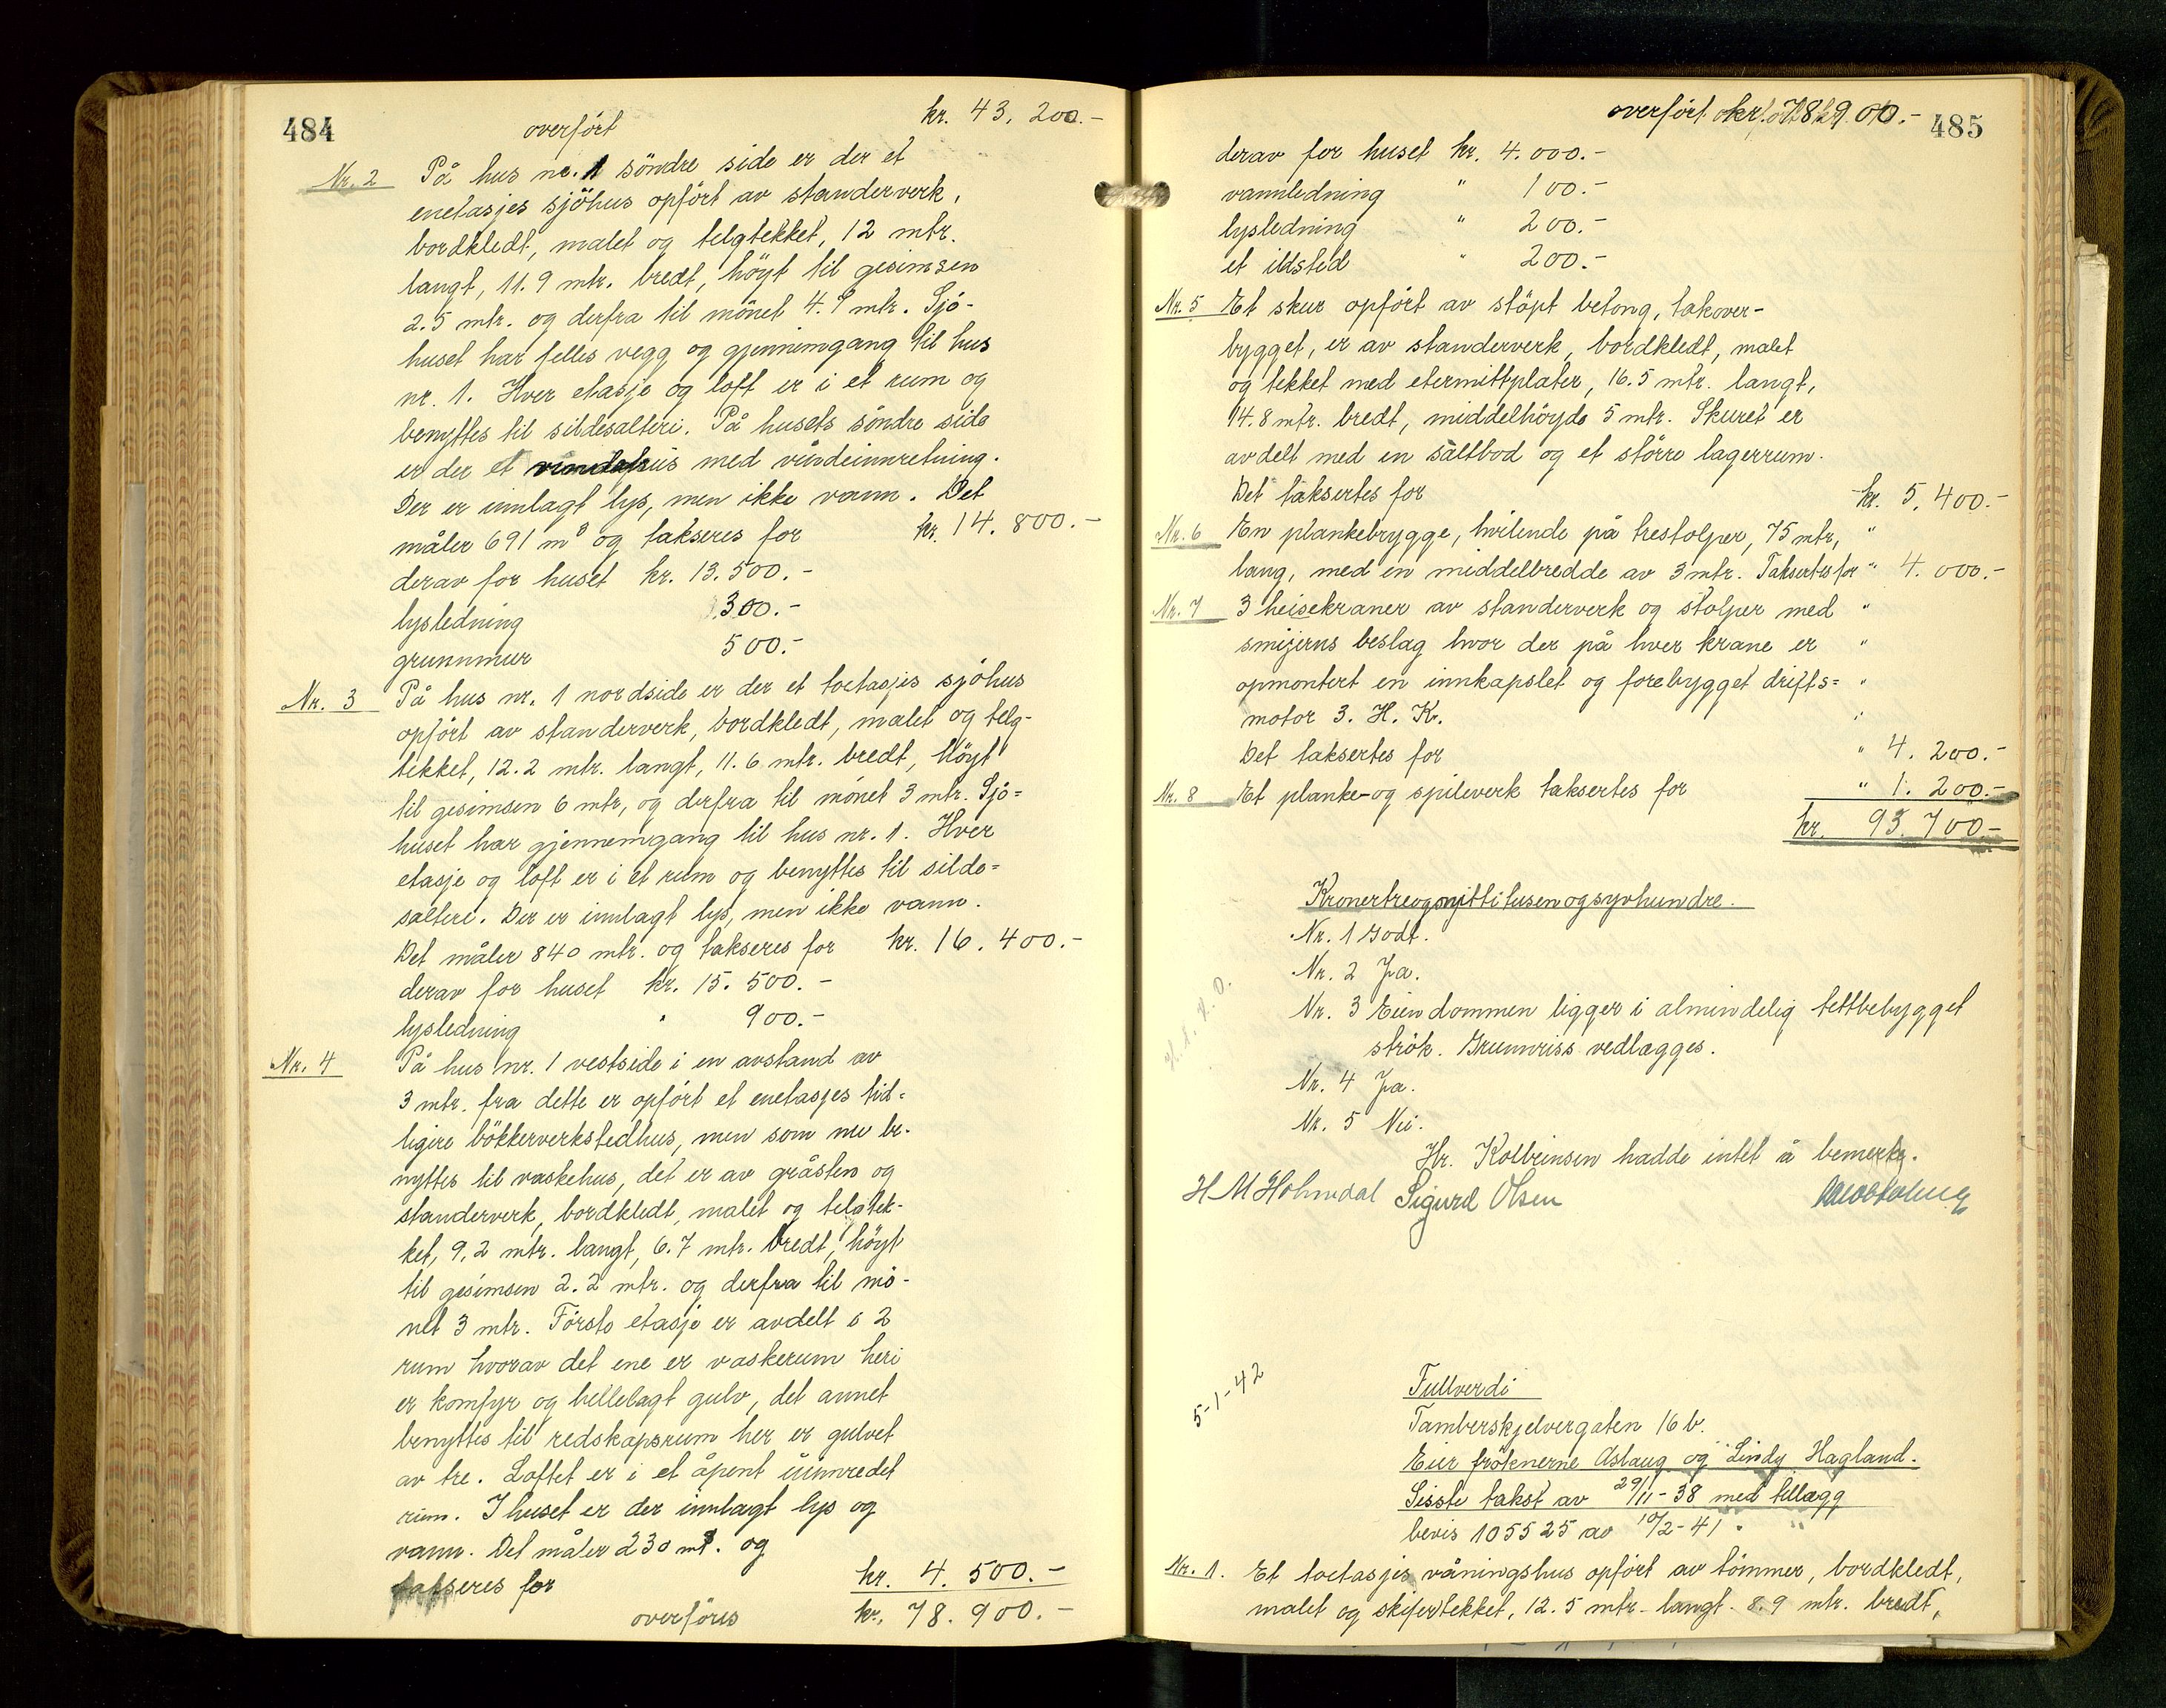 484
overført kr. 43.200.-
Nr. 2 På hus nr. 1 söndre side er der et
enetasjes sjöhus opført av standerverk,
bordkledt, malet og telgtekket, 12 mtr.
langt, 11.9 mtr. bredt, höyt til gesimsen
2.5 mtr. og derfra til mönet 4.9 mtr. Sjö-
huset har felles vegg og gjennemgang til hus
nr. 1. Hver etasje og loft er i et rum og
benyttes til sildesalteri. På husets söndre side
er der et vindehus med vindeinnretning.
Der er innlagt lys, men ikke vann. Det
måler 691 m³ og takseres for kr. 14.800.-
derav for huset kr. 13.500.-
lysledning 300.-
grunnmur 500.-
Nr. 3 På hus nr. 1 nordside er der et toetasjes sjöhus
opfört av standerverk, bordkledt, malet og telg-
tekket, 12.2 mtr. langt, 11.6 mtr. bredt, höyt
til gesimsen 6 mtr, og derfra til mönet 3 mtr. Sjö=
huset har gjennemgang til hus nr. 1. Hver
etasje og loft er i et rum og benyttes til silde=
salteri. Der er innlagt lys, men ikke vann.
Det måler 840 mtr. og takseres for kr. 16.400.-
derav for huset kr. 15.500.-
lysledning " 900.-
Nr. 4 På hus nr. 1 vestside i en avstand av
3 mtr. fra dette er opfört et enetasjes tid=
ligere bökkerverkstedhus, men som nu be-
nyttes til vaskehus, det er av gråsten og
standerverk, bordkledt, malet og telgtek-
ket, 9,2 mtr. langt, 6.7 mtr. bredt, höyt
til gesimsen 2.2 mtr. og derfra til mö-
net 3 mtr. Förste etasje er avdelt i 2
rum hvorav det ene er vaskerum heri
er komfyr og hellelagt gulv, det annet
benyttes til redskapsrum her er gulvet
av tre. Loftet er i et åpent uinnredet
rum. I huset er der innlagt lys og
vann. Det måler 230 m³. og
takseres for kr. 4.500.-
overföres kr. 78.900.-
overført kr. 78.900.- 485
derav for huset kr. 4.000.-
vannledning " 100.-
lysledning " 200.-
et ildsted " 200.-
Nr. 5 Et skur opfört av stöpt betong, takover-
bygget, er av standerverk, bordkledt, malet
og tekket med etermittplater, 16.5 mtr. langt,
14.8 mtr. bredt, middelhöyde 5 mtr. Skuret er
avdelt med en saltbod og et större lagerrum.
Det taksertes for kr. 5.400.-
Nr. 6 En plankebrygge, hvilende på trestolper, 75 mtr, "
lang, med en middelbredde av 3 mtr. Taksertes for " 4.000.-
Nr. 7 3 heisekraner av standerverk og stolper med "
smijerns beslag hvor der på hver krane er "
opmontert en innkapslet og forebygget drifts= "
motor 3. H. Kr. "
Det taksertes for " 4.200.-
Nr. 8 Et planke-og spileverk taksertes for " 1.200.-
kr. 93.700-
Kronertreognittitusenogsyvhundre.
Nr. 1 Godt.
Nr. 2 Ja.
Nr. 3 Eiendommen ligger i almindelig tettbebygget
strök. Grunnriss vedlægges.
Nr. 4 Ja.
Nr. 5 Nei.
Hr. Kolbeinsen hadde intet å bemerke.
H M Holmedal Sigurd Olsen
5-1-42
Fullverdi
Tamberskjelvergaten 16 b.
Eier fröknerne Aslaug og Lindy Hagland.
Sisste takst av 29/11-38 med tillægg
bevis 105525 av 10/2-41.
Nr. 1. Et toetasjes våningshus opfört av tömmer, bordkledt,
malet og skifertekket, 12.5 mtr. langt. 8.9 mtr. bredt,